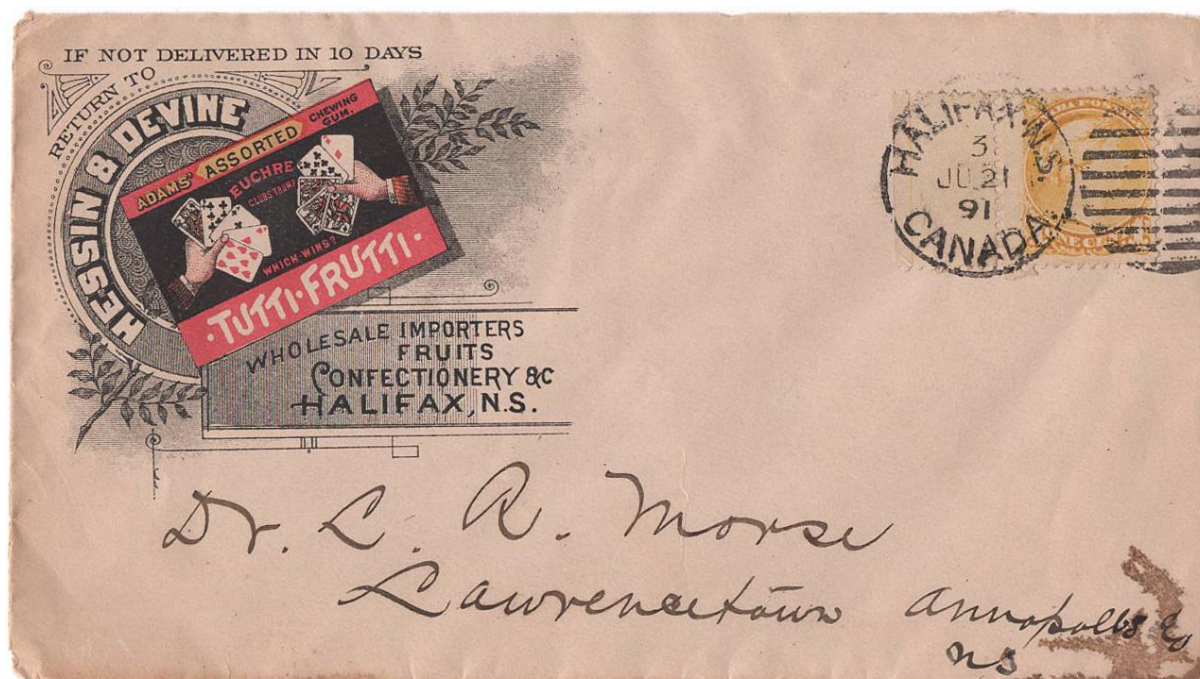 IF NOT DELIVERED IN 10 DAYS
RETURN TO
HESSIN & DEVINE
ADAMS' ASSORTED CHEWING GUM.
EUCHRE
CLUBS TRUMP
WHICH WINS?
·TUTTI-FRUTTI·
WHOLESALE IMPORTERS
FRUITS
CONFECTIONERY &C
HALIFAX, N.S.
HALIFAX, N.S.
3
JU 21
91
CANADA
Dr. L. R. Morse
Lawrencetown Annapolis Co
NS